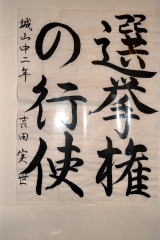 選挙権
の行使
城山中二年 吉田実世